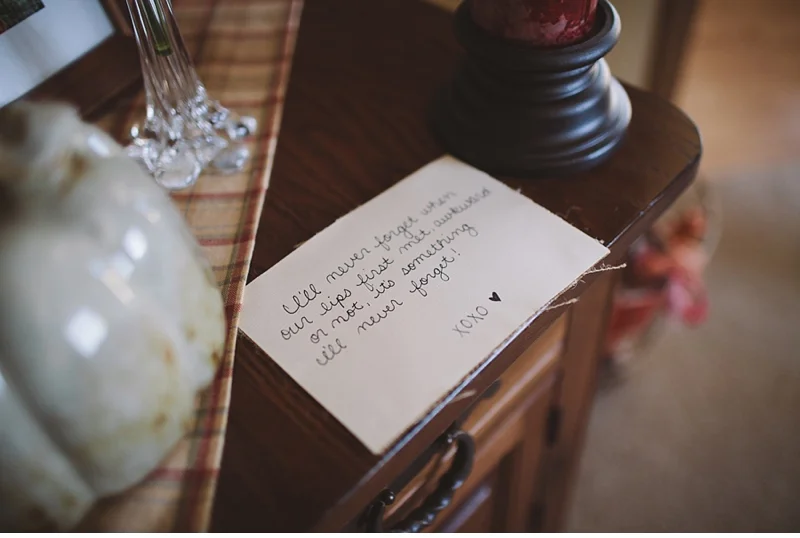 I'll never forget when
our lips first met, awkward
or not, its something
i'll never forget!
xoxo ♥